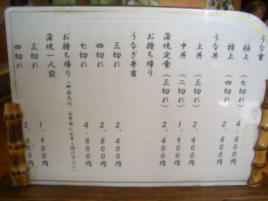 うな重
極上（七切れ）４，８００円
特上（四切れ）２，８００円
うな丼
上丼（三切れ）２，４００円
中丼（二切れ）１，９００円
蒲焼定食（三切れ）２，４００円
お持ち帰り
うなぎ弁当
三切れ ２，４００円
四切れ ２，８００円
七切れ ４，８００円
お持ち帰り
蒲焼一人前
三切れ １，９００円
四切れ ２，４００円